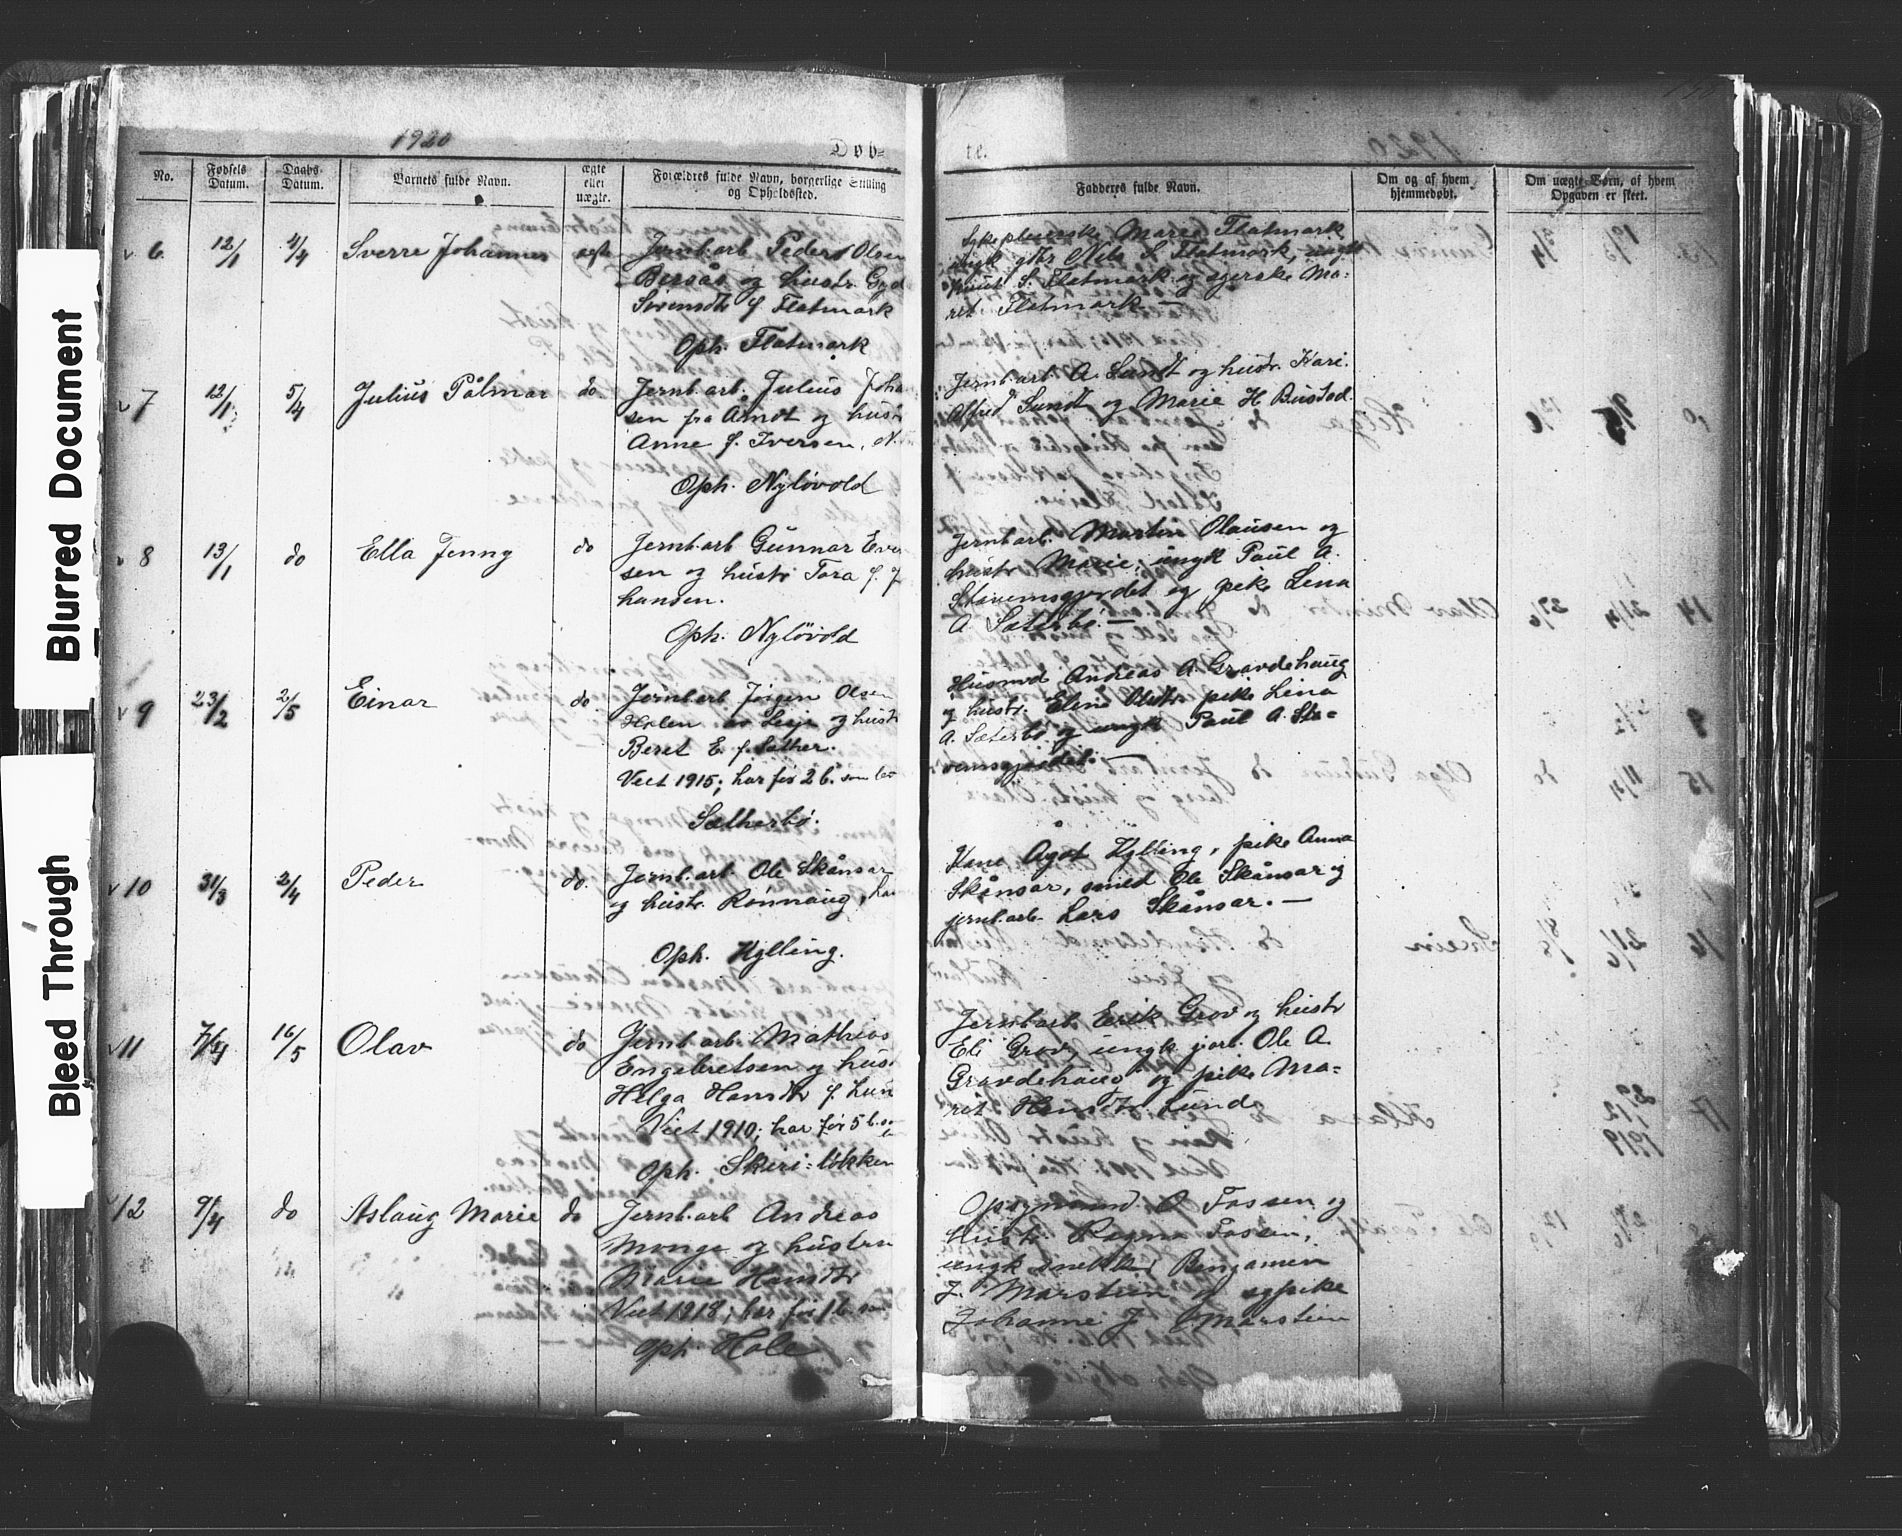 Blurred Document
Bleed Through
1920
Døb=
te.
No.
Fødsels Datum.
Daabs- Datum.
Barnets fulde Navn.
ægte eller uægte.
Forældres fulde Navn, borgerlige Stilling og Opholdssted.
Fadderes fulde Navn.
Om og af hvem hjemmedøbt.
Om uægte Børn, af hvem Opgaven er skeet.
6 12/1 4/4 Sverre Johannes ægte
Jernb.arb Peders Olsen
og hustr.
Svensdtr f. Flatmark
Oph. Flatmark
Marie Flatmark
gbr Nils S. Flatmark, ungk
Knut S. Flatmark og syerske Ma-
ret Flatmark —
7 12/1 5/4 Julius Pålmar do
Jernb.arb. Julius Joha
sen fra og hustr
Anne f. Iversen, N.
Oph. Nyløvold
Jernb.arb A. Sundt og hustr Kari.
Alfred Sundt og Marie H. Bustad.
8 13/1 do Ella Jenny do
Jernb.arb Gunnar Eve
sen og hustr Tora f. J
hansen.
Oph. Nyløvold
Jernb.arb. Martin Olausen og
hustr Marie; ungk Paul A.
Stavemsgjerdet og pike Lena
A. Sæterbø. —
9 23/2 2/5 Einar do
Jernb.arb Jørgen Olsen
Holen av Lesje og hustr
Beret E. f. Sæther.
Viet 1915; har før 2 b. som lev
Sætherbø.
Husmd Andreas A. Gravdehaug
og hustr. Eline Olsdtr. pike Lina
A. Sæterbø og ungk Paul A. Sta-
vemsgjerdet.
10 31/3 2/4 Peder do.
Jernb.arb Ole Skånsar
og hustr. Rønnaug,
Oph. Kylling.
Kone Ågot Kylling, pike Anna
Skånsar, smed Ole Skånsar og
jernb.arb Lars Skånsar. —
11 7/4 16/5 Olav do
Jernb.arb Mathias
Engebretsen og hus
Helga Hansdtr f. Lun
Viet 1910; har før 5 b.
Oph. Skiri-løkken
Jernb.arb Erik Grov og hustr
Eli Grov, ungk jarb. Ole A.
Gravdehaug og pike Ma-
ret Hansdtr. Lund
12 9/4 do Aslaug Marie do
Jernb.arb Andreas
Monge og hustru
Marie Hansdtr
Viet 1918; har før 1 b. som
Oph. Hole
Opsynsmand O Fossen og
hustr Ragna Fossen,
ungk snekker Benjamin
J. Marstein og sypike
Johanne J. Marstein